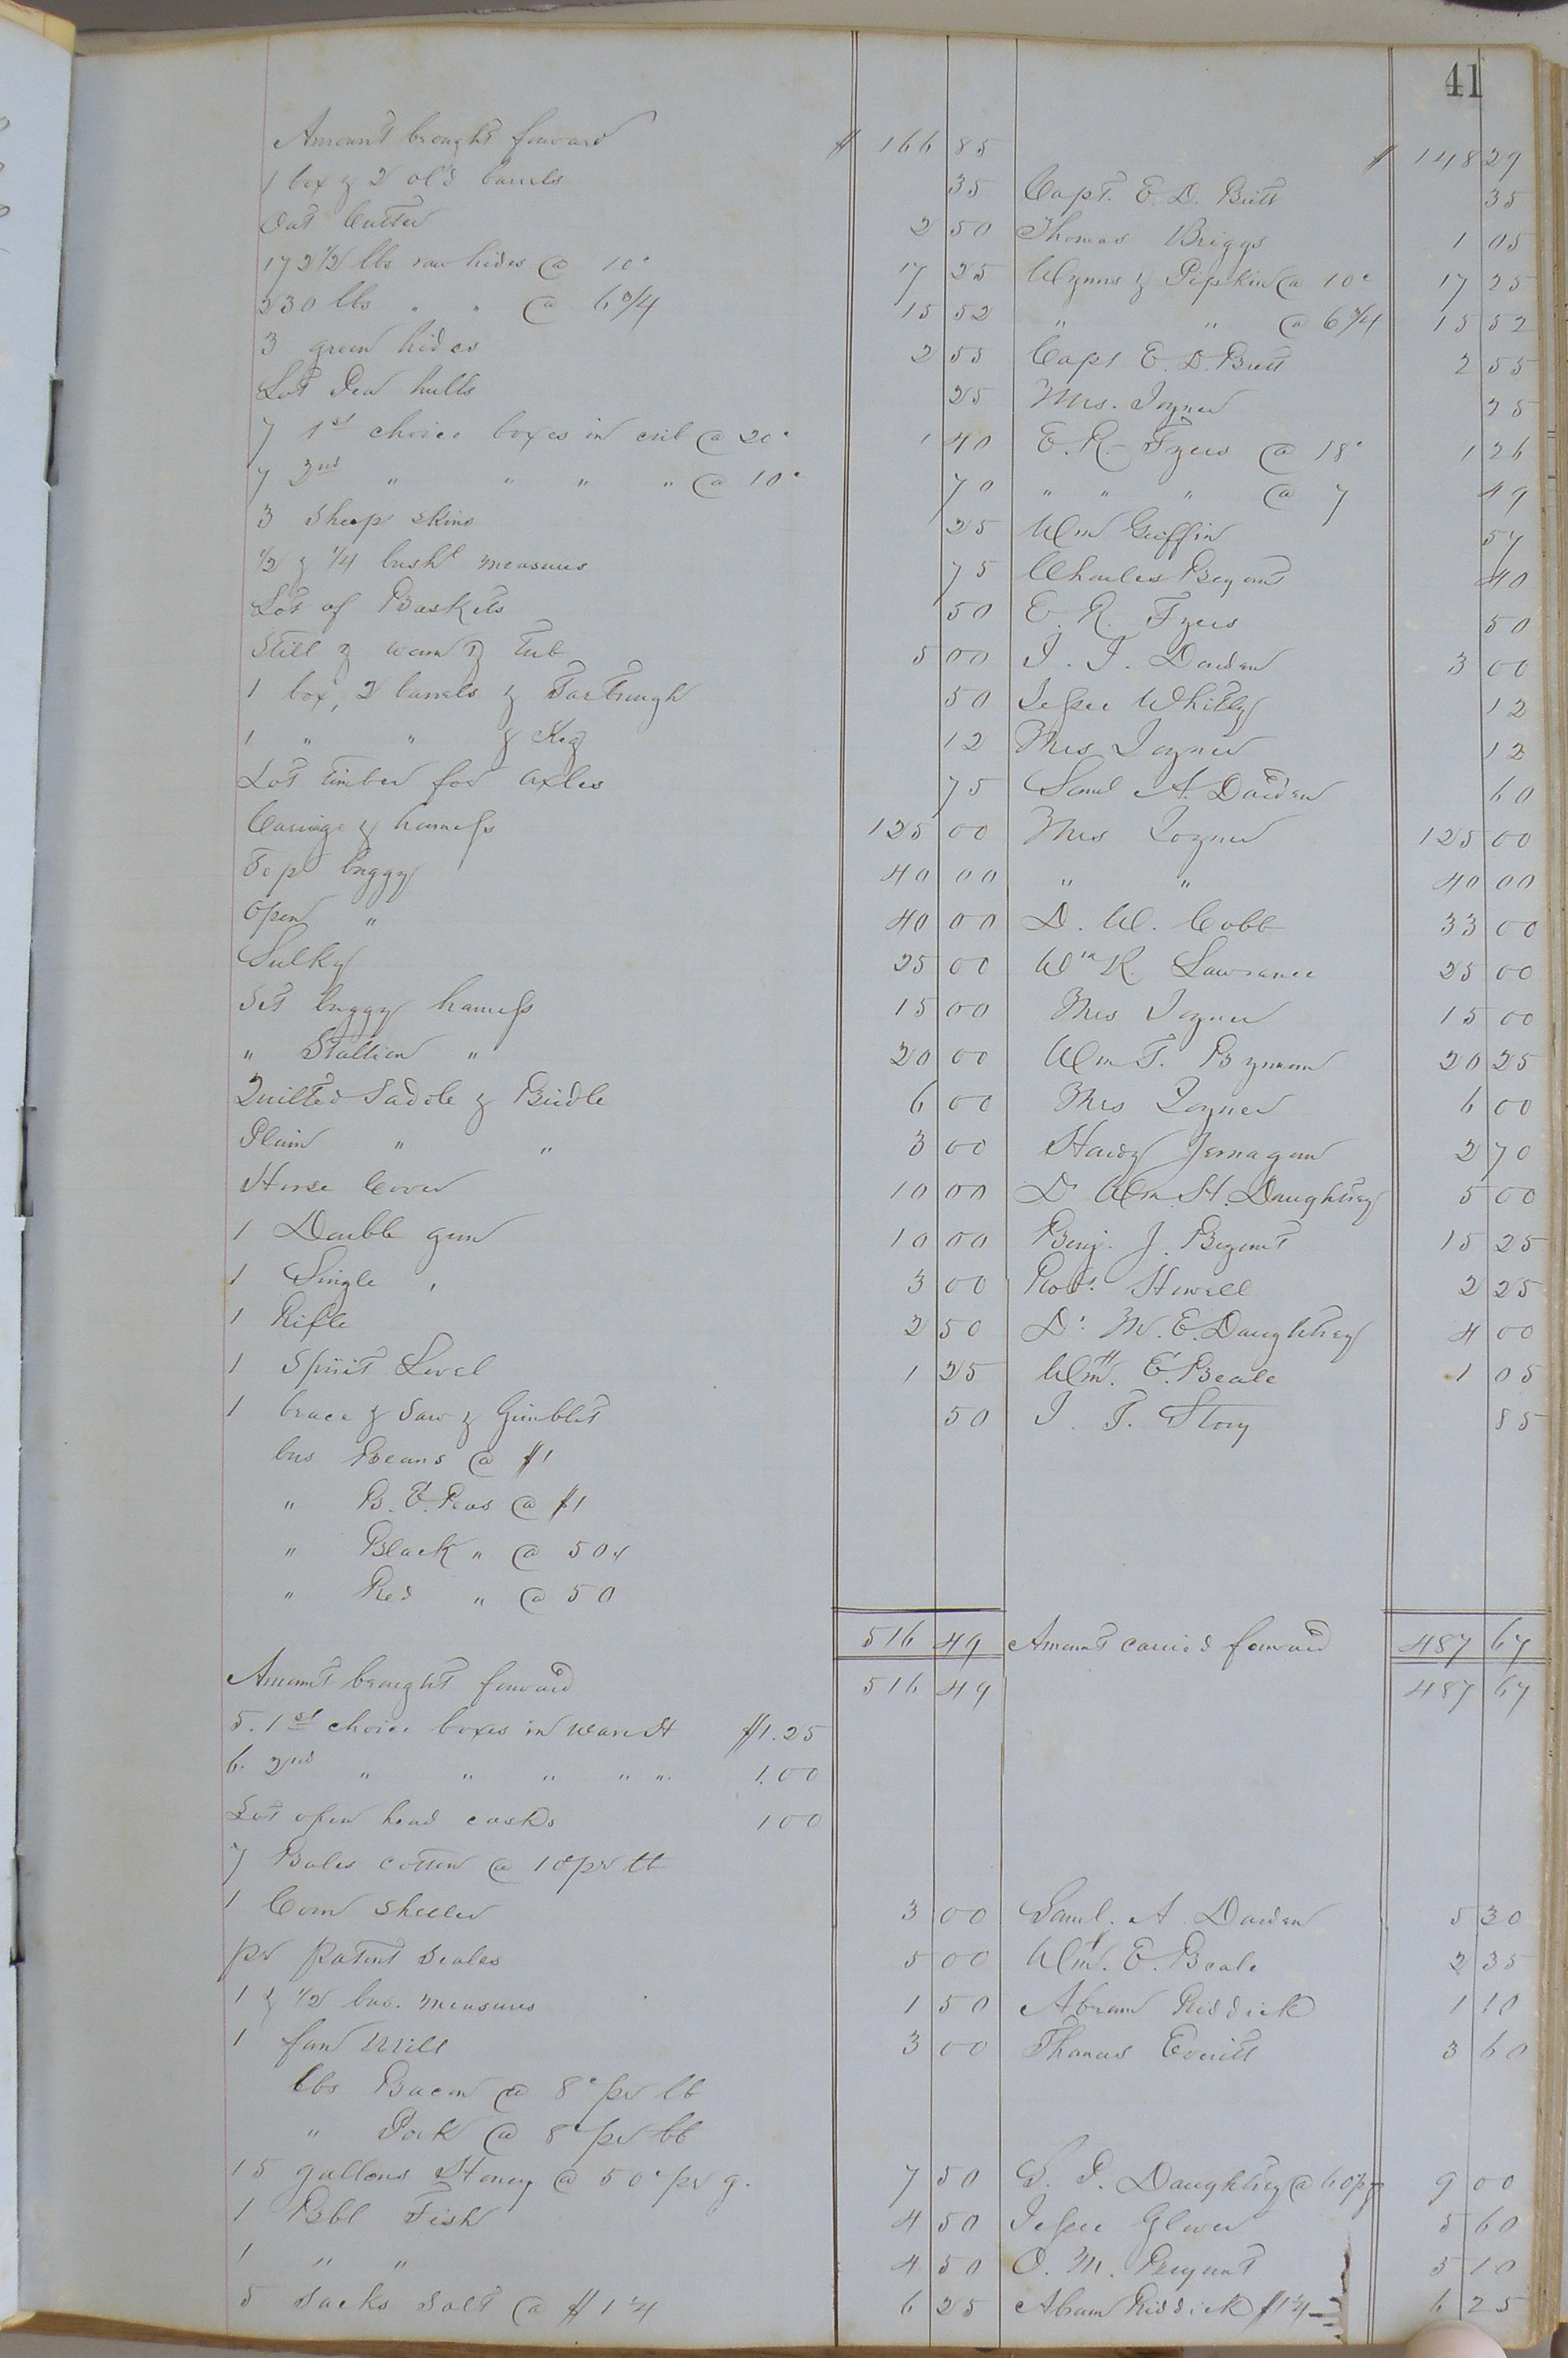 41
Amount brought forward $ 166 85 $ 148 29
1 box & 2 ol'd barrels 35 Capt. E. D. Britt 35
Oat Cutter 2 50 Thomas Briggs 1 05
172 1/2 lbs raw hides @ 10c 17 25 Wynns & Pipkin @ 10c 17 25
230 lbs " " @ 6 3/4 15 52 " " @ 6 3/4 15 52
3 green hides 2 55 Capt E. D. Britt 2 55
Lot Pea hulls 25 Mrs. Joyner 25
7 1st choice boxes in crib @ 20c 1 40 E. R. Tyers @ 18c 1 26
7 2nd " " " " @ 10c 70 " " " @ 7 49
3 Sheep skins 25 Wm Griffin 57
1/2 & 1/4 bushl measures 75 Charles Bryant 40
Lot of Baskets 50 E. R. Tyers 50
Still & worm & tub 5 00 J. J. Darden 3 00
1 box, 2 barrels & Tar Trough 50 Jesse Whitly 12
1 " " & Keg 12 Mrs Joyner 12
Lot timber for axles 75 Saml A. Darden 60
Carriage & harness 125 00 Mrs Joyner 125 00
Top buggy 40 00 " " 40 00
Open " 40 00 D. W. Cobb 33 00
Sulky 25 00 Wm R. Lawrance 25 00
Set buggy harness 15 00 Mrs Joyner 15 00
" Stallion " 20 00 Wm T. Bynum 20 25
Quilted Saddle & Bridle 6 00 Mrs Joyner 6 00
Plain " " 3 00 Hardy Jernagan 2 70
Horse Cover 10 00 Dr Wm H. Daughtrey 5 00
1 Double gun 10 00 Benj. J. Bryant 15 25
1 Single " 3 00 Robt. Howell 2 25
1 Rifle 2 50 Dr. M. E. Daughtrey 4 00
1 Spirit Level 1 25 Wm. E. Beale 1 05
1 brace & Saw & Gimblet 50 J. T. Story 85
bus Beans @ $1
" B. E. Peas @ $1
" Black " @ 50c
" Red " @ 50
516 49 Amount carried forward 487 67
Amount brought forward 516 49 487 67
5. 1st choice boxes in ware H $1.25
6. 2nd " " " " " 1.00
Lot open head casks 1 00
7 Bales cotton @ 10c pr lb
1 Corn sheller 3 00 Saml. A. Darden 5 30
pr patent scales 5 00 Wm. E. Beale 2 35
1 & 1/2 bus. measures 1 50 Abram Riddick 1 10
1 fan mill 3 00 Thomas Everitt 3 60
lbs Bacon @ 8c pr lb
" Pork @ 8c pr lb
15 gallons Honey @ 50c pr g. 7 50 S. P. Daughtrey @ 60 pg 9 00
1 Bbl Fish 4 50 Jesse Glover 5 60
1 " " 4 50 O. M. Bryant 5 10
5 Sacks Salt @ $1 1/4 6 25 Abram Riddick $1 1/4 6 25